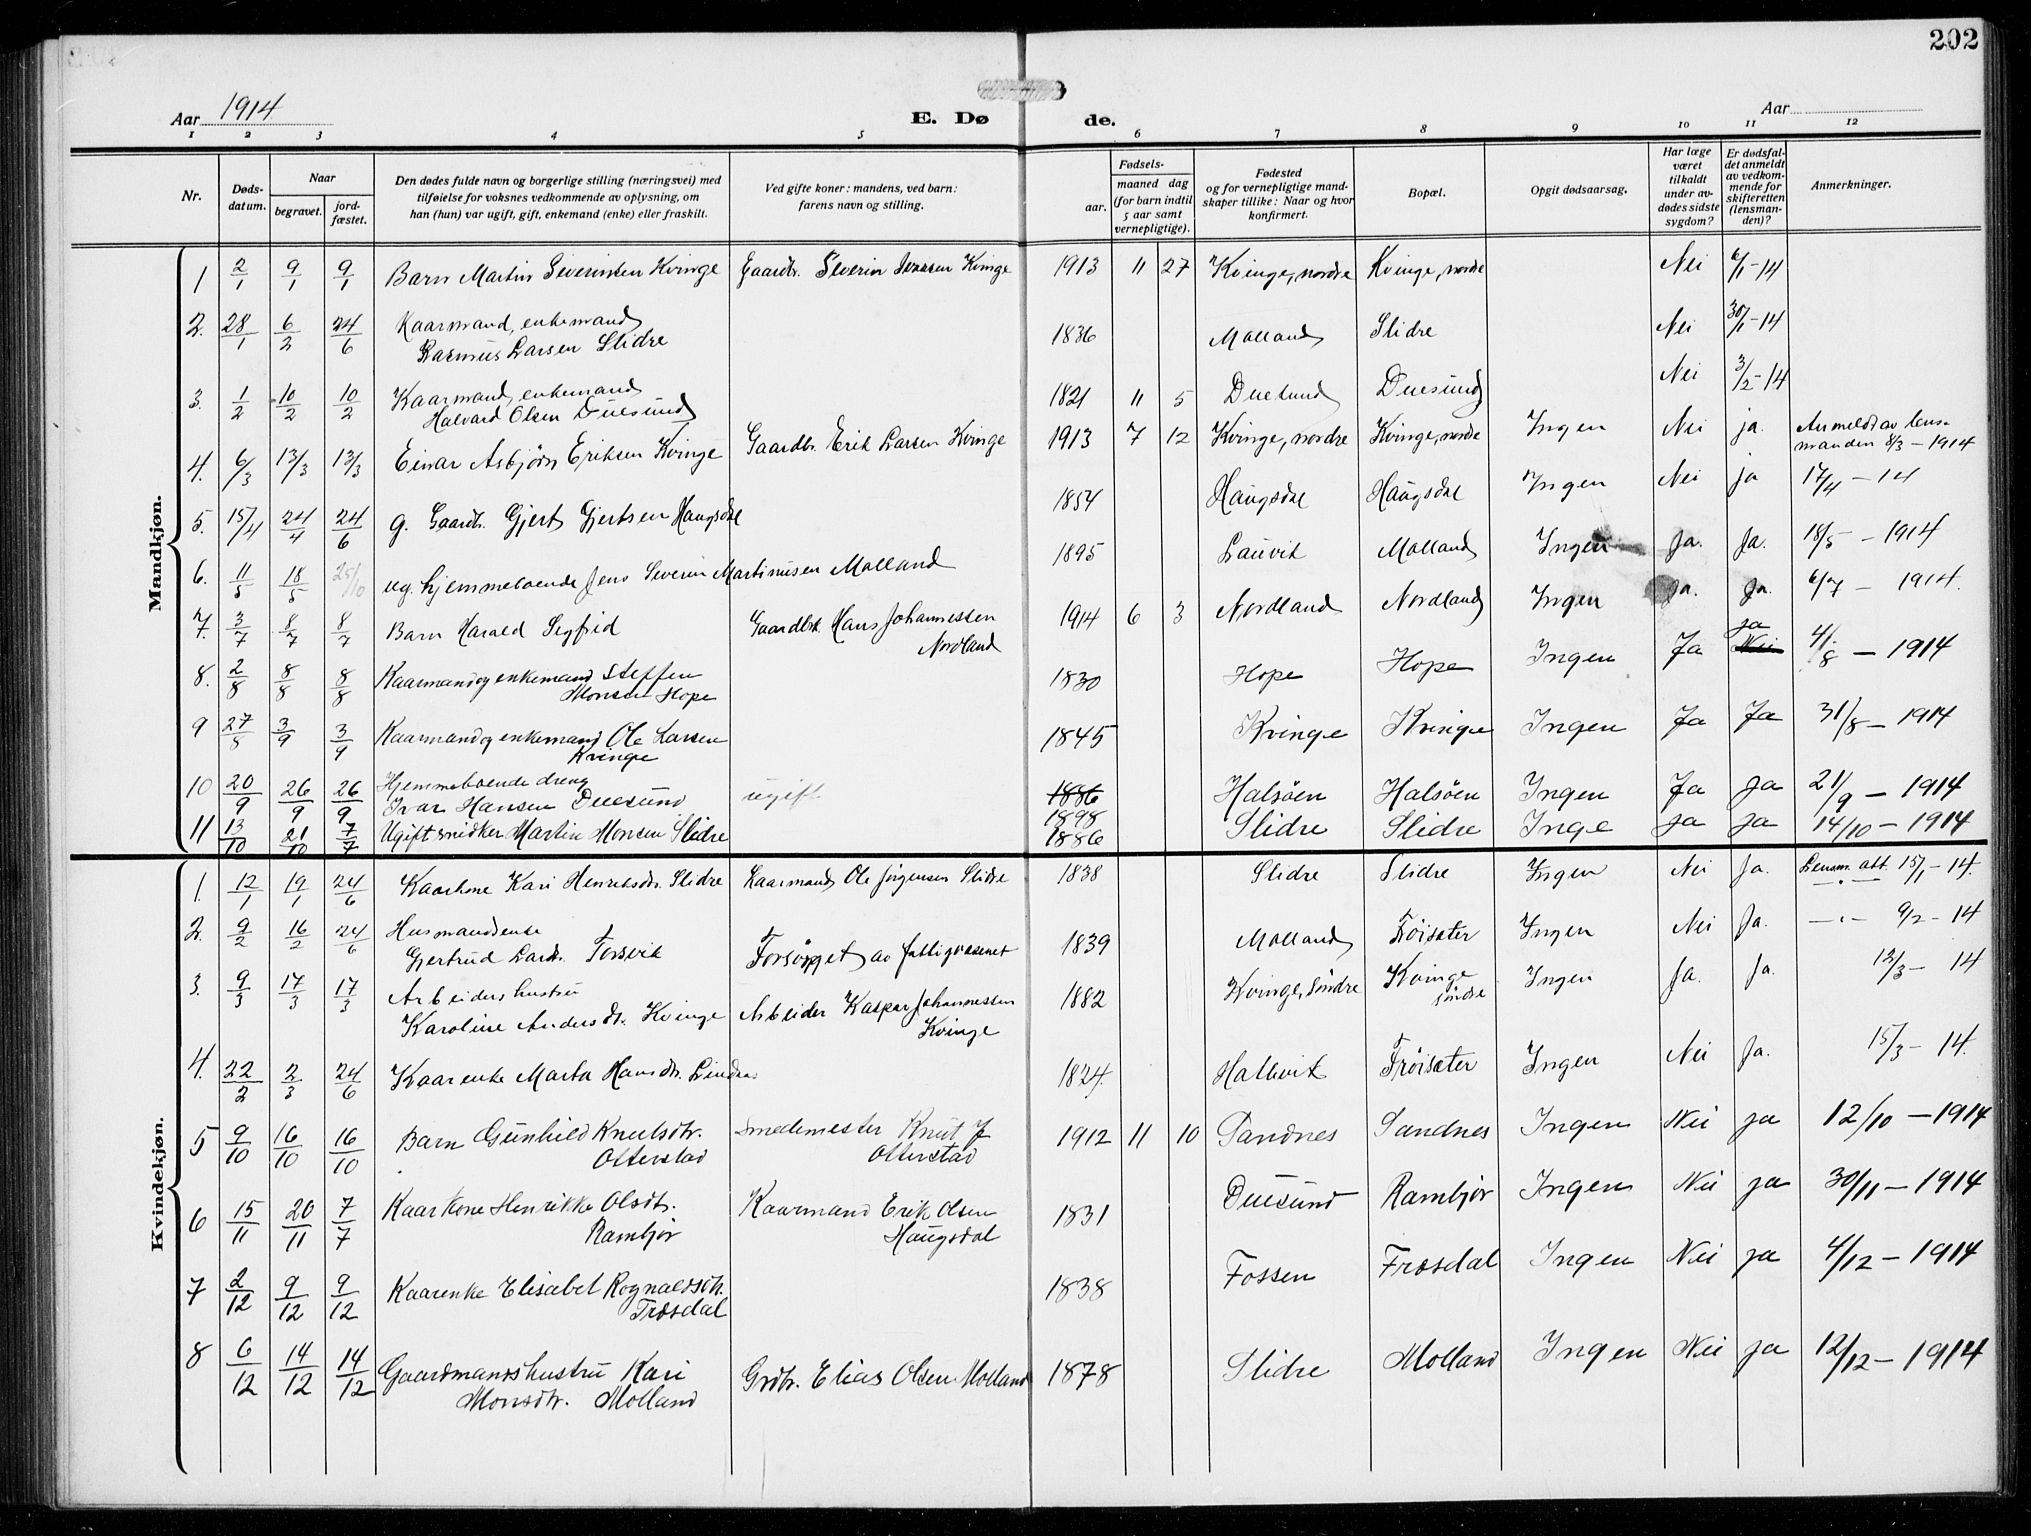 202
Aar 1914
E. Dø de.
Aar
1 2 3 4 5 6 7 8 9 10 11 12
Nr.
Døds-
datum.
Naar
begravet.
jord-
fæstet.
Den dødes fulde navn og borgerlige stilling (næringsvei) med
tilføielse for voksnes vedkommende av oplysning, om
han (hun) var ugift, gift, enkemand (enke) eller fraskilt.
Ved gifte koner: mandens, ved barn:
farens navn og stilling.
Fødsels-
aar.
maaned dag
(for barn indtil
5 aar samt
vernepligtige).
Fødested
og for vernepligtige mand-
skaper tillike: Naar og hvor
konfirmert.
Bopæl.
Opgit dødsaarsag.
Har læge
været
tilkaldt
under av-
dødes sidste
sygdom?
Er dødsfal-
det anmeldt
av vedkom-
mende for
skifteretten
(lensman-
den)?
Anmerkninger.
Mandkjøn.
1 2/1 9/1 9/1 Barn Martin Severinsen Kvinge Gaardbr. Severin Kvinge 1913 11 27 Kvinge, nordre Kvinge, nordre Nei 6/1-14
2. 28/1 6/2 24/6 Kaarmand, enkemand
Rasmus Larsen Slidre 1836 Molland Slidre Nei 30/1-14
3. 1/2 10/2 10/2 Kaarmand, enkemand
Halvard Olsen Duesund 1821 11 5 Duesund Duesund Nei 3/2-14
4. 6/3 13/3 13/3 Einar Asbjørn Eriksen Kvinge Gaardbr. Erik Larsen Kvinge 1913 7 12 Kvinge, nordre Kvinge, nordre Ingen Nei ja. Anmeldt av lens-
manden 8/3 - 1914
5. 15/4 24/4 24/6 g. Gaardbr. Gjert Gjertsen Haugsdal 1854 Haugsdal Haugsdal Ingen Nei ja 17/4 - 14
6. 11/5 18/5 25/10 ug. hjemmeboende Jens Severin Martinusen Molland 1895 Lauvik Molland Ingen Ja. Ja. 18/5 - 1914
7. 3/7 8/7 8/7 Barn Harald Segfrid Gaardbr. Hans Johannessen
Nordland 1914 6 3 Nordland Nordland Ingen Ja. Ja. 6/7 - 1914.
8. 2/8 8/8 8/8 Kaarmand og enkemand Steffen
Monsen Hope 1830 Hope Hope Ingen Ja ja Nei 4/8 - 1914
9 27/8 3/9 3/9 Kaarmand og enkemand Ole Larsen
Kvinge 1845 Kvinge Kvinge Ingen Ja Ja 31/8 - 1914
10 20/9 26/9 26/9 Hjemmeboende dreng
Ivar Hansen Duesund ugift. 1886 1898 Halsöen Halsöen Ingen Ja Ja 21/9 - 1914
11 13/10 21/10 7/7 Ugift snidker Martin Monsen Slidre 1886 Slidre Slidre Inge ja ja 14/10 - 1914
Kvindekjøn.
1. 12/1 19/1 24/6 Kaarkone Kari Henriksdtr. Slidre Kaarmand Ole Jörgensen Slidre 1838 Slidre Slidre Ingen Nei Ja. Lensm. att. 15/1-14.
2. 9/2 16/2 24/6 Husmandsenke
Gjertrud Larsdr. Torsvik Forsörget av fattigvæsenet 1839 Molland Fröisæter Ingen Nei Ja. —„— 9/2 - 14
3. 9/3 17/3 17/3 Arbeiders hustru
Karoline Andersdtr. Kvinge Arbeider Kaspar Johannessen
Kvinge 1882 Kvinge, söndre Kvinge
söndre Ingen Ja. Ja. 12/3 - 14
4. 22/2 2/3 24/6 Kaarenke Marta Hansdtr. Lindaas 1824. Hallvik Fröisæter Ingen Nei Ja. 15/3 - 14.
5 9/10 16/10 16/10 Barn Gunhild Knutsdtr.
Otterstad Smedemester Knut J
Otterstad 1912 11 10 Sandnes Sandnes Ingen Nei ja 12/10 - 1914
6 15/11 20/11 7/7 Kaarkone Henrikke Olsdtr.
Rambjör Kaarmand Erik Olsen
Haugsdal 1831 Duesund Rambjör Ingen Nei ja 30/11 - 1914
7 2/12 9/12 9/12 Kaarenke Elisabet Rognaldsdtr.
Fræsdal 1838 Fossen Fræsdal Ingen Nei ja 4/12 - 1914
8 6/12 14/12 14/12 Gaardmandshustru Kari
Monsdtr. Molland Grdbr. Elias Olsen Molland 1878 Slidre Molland Ingen Nei ja 12/12 - 1914